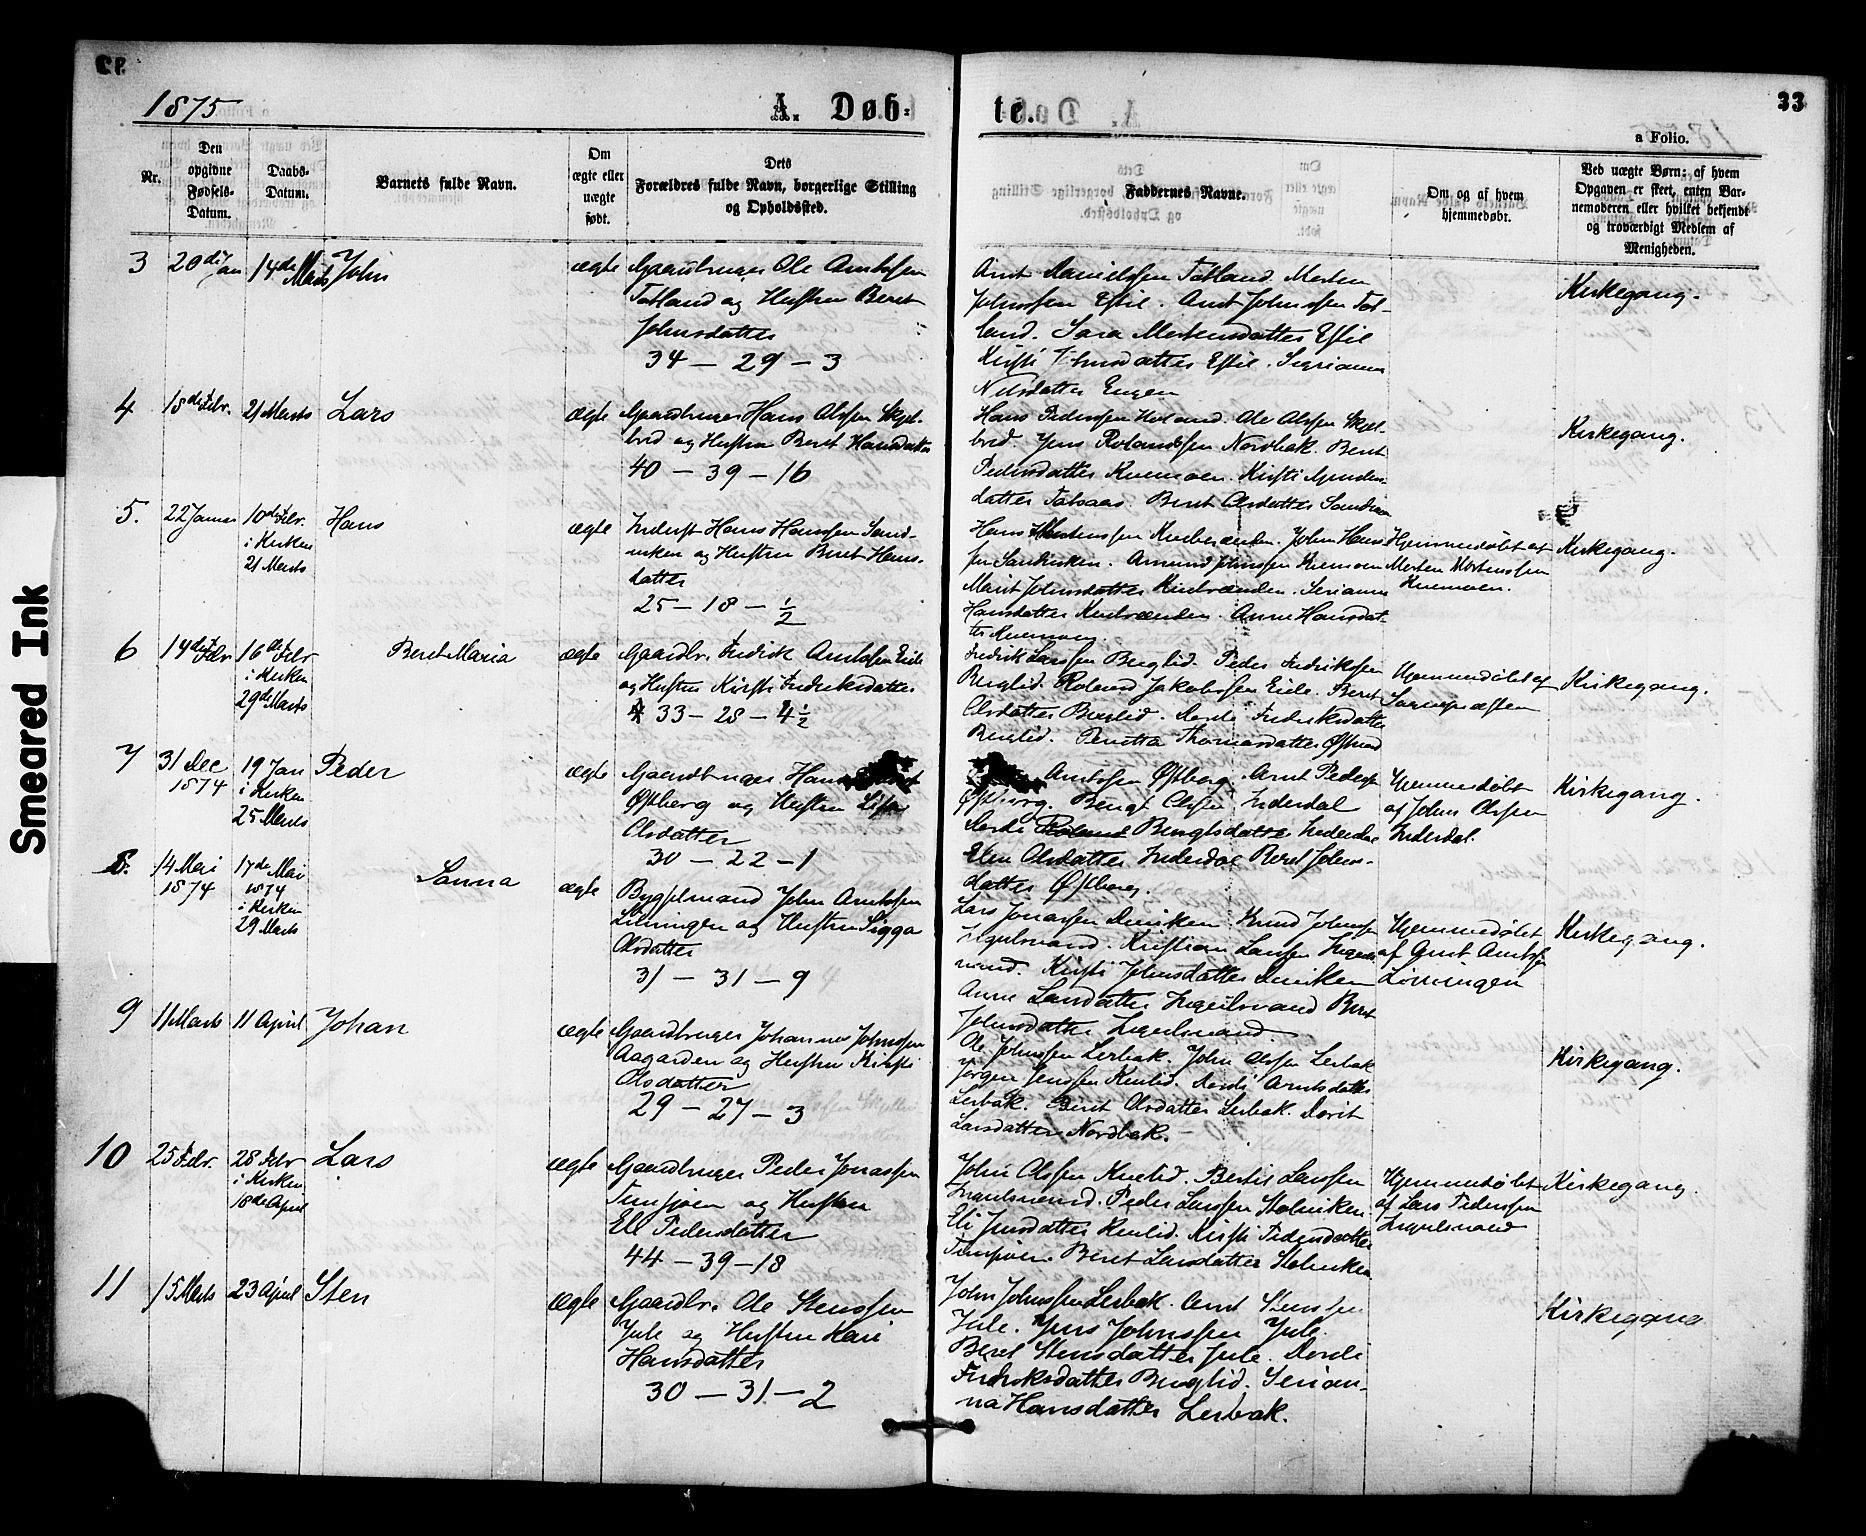 Smeared Ink
1875
A. Døb-
te.
33
a Folio.
Nr.
Den opgivne Fødsels-Datum.
Daabs-Datum.
Barnets fulde Navn.
Om ægte eller uægte født.
Dets Forældres fulde Navn, borgerlige Stilling og Opholdssted.
Faddernes Navne.
Om og af hvem hjemmedøbt.
Ved uægte Børn: af hvem Opgaven er skeet, enten Barnemoderen eller hvilket bekjendt og troværdigt Medlem af Menigheden.
3
20de Jan
14de Marts
John
ægte
Gaardbruger Ole Arntssen
Tatland og Hustru Beret
Johnsdatter
34 - 29 - 3
Arnt Danielssen Tatland Morten
Johnssen Estil. Arnt Johnssen Tat-
land. Sara Mortensdatter Estil
Kirsti Johnsdatter Estil. Serianna
Nilsdatter Engen
Kirkegang.
4
18de Febr.
21 Marts
Lars
ægte
Gaardbruger Hans Olssen Skjel-
bred og Hustru Beret Hansdatter
40 - 39 - 16
Hans Pederssen Holand. Ole Olssen Skjel-
bred. Jens Rolandssen Nordbak. Beret
Pedersdatter Kvernoen. Kirsti
datter. Beret Olsdatter
Kirkegang.
5.
22 Januar
10de Febr.
i Kirken
21 Marts
Hans
ægte
Inderst Hans Hanssen Sand-
viken og Hustru Beret Hans-
datter
25 - 18 - 1/2
Hans Mortenssen. John Hans-
sen Sandviken. Amund Johnssen Kvernoen
Marit Johnsdatter. Serianna
Hansdatter. Anne Hansdat-
ter Kvernoen.
Hjemmedøbt af
Morten Mortenssen
Kvernoen.
Kirkegang.
6
14de Febr
16de Febr
i Kirken
29de Marts
Beret Maria
ægte
Gaardbr. Fredrik Arntssen Eide
og Hustru Kirsti Fredriksdatter
33 - 28 - 4 1/2
Fredrik Larssen Berglid. Peder Fredrikssen
Berglid. Roland Jakobssen Eide. Beret
Olsdatter Berglid. Dordi Fredriksdatter
Berglid. Peretta Thomasdatter
Hjemmedøbt af
Sognepræsten
Kirkegang.
7
31 Dec
1874
19 Jan
i Kirken
25 Marts
Peder
ægte
Gaardbruger Hans
Østberg og Hustru
Olsdatter
30 - 22 - 1
Arntssen Østberg. Arnt Pederss
Østborg. Bengt Olssen Inderdal
Dordi Bengtsdatter Inderdal
Elen Olsdatter Inderdal Beret Johns-
datter Østberg.
Hjemmedøbt
af John Olssen
Inderdal.
Kirkegang.
8.
14 Mai
1874
17de Mai
1874
i Kirken
29 Marts
Sanna
ægte
Bygselmand John Arntssen
og Hustru Sigga
Olsdatter
31 - 31 - 9
Lars Jonassen. Knud Johnssen
Ingulsvand. Kristian Larssen Inguls-
vand. Kirsti Johnsdatter
Anne Larsdatter Ingulsvand Beret
Johnsdatter Ingulsvand
Hjemmedøbt
af Arnt Arntssen
Kirkegang.
9
11 Marts
11 April
Johan
ægte
Gaardbruger Johannes Johnssen
Aagarden og Hustru Kirsti
Olsdatter
29 - 27 - 3
Ole Johnssen Lerbak. John Olssen Lerbak
Jørgen Jenssen. Dordi Arntsdatter
Lerbak. Beret Olsdatter Lerbak. Dorit
Larsdatter Nordbak.
Kirkegang.
10
25 Febr.
28 Febr
i Kirken
18de April
Lars
ægte
Gaardbruger Peder Jonassen
og Hustru
Eli Pedersdatter
44 - 39 - 18
John Olssen. Bertil Larssen
Ingulsvand. Peder Larssen
Eli Jensdatter. Kirsti Pedersdatter
Beret Larsdatter
Hjemmedøbt
af Lars Pederssen
Ingulsvand
Kirkegang.
11
15 Marts
23 April
Sten
ægte
Gaardbr. Ole Stenssen
Jule og Hustru Kari
Hansdatter
30 - 31 - 2
John Johnssen Lerbak. Arnt Stenssen
Jule. Jens Johnssen Jule.
Beret Stensdatter Jule. Dordi
Fredriksdatter Berglid. Serian-
na Hansdatter Lerbak.
Kirkegang